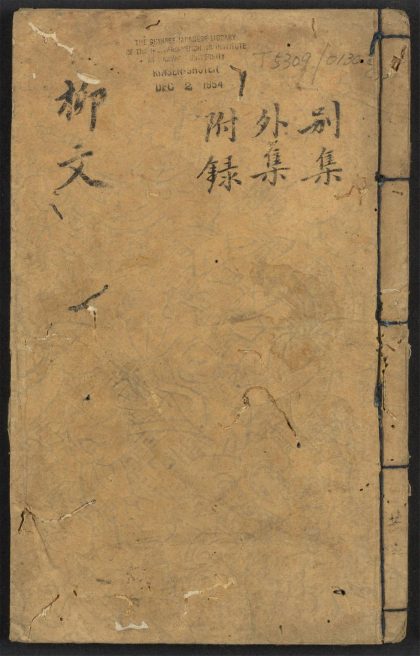 THE CHINESE-JAPANESE LIBRARY
OF THE HARVARD-YENCHING INSTITUTE
AT HARVARD UNIVERSITY
DEC 2 1954
T5309/
別集
外集
附録
柳文